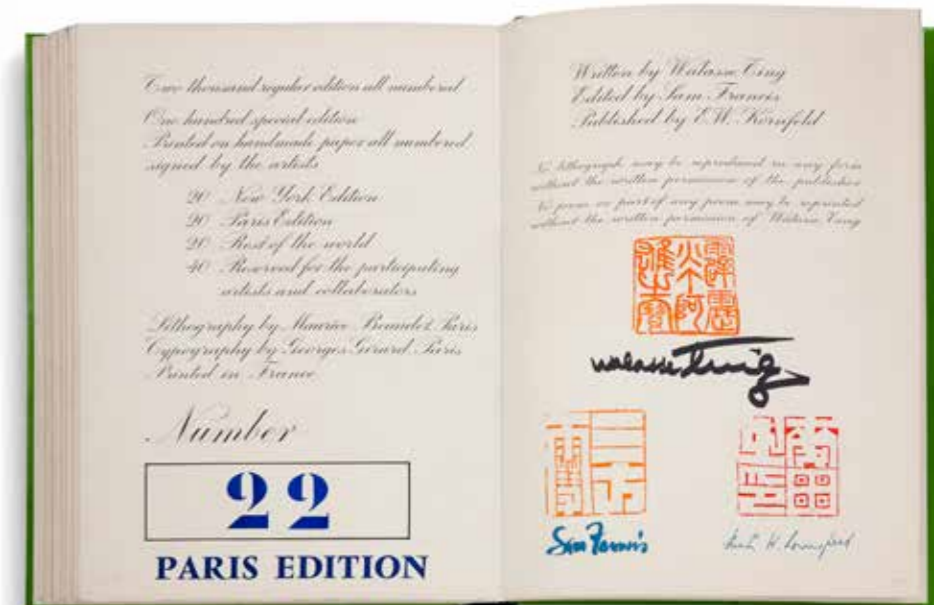 Two thousand regular edition all numbered
One hundred special edition
Printed on handmade paper all numbered
signed by the artists
20 New York Edition
20 Paris Edition
20 Rest of the world
40 Reserved for the participating
artists and collaborators
Lithography by Maurice Beaudet Paris
Typography by Georges Girard Paris
Printed in France
Number
22
PARIS EDITION
Written by Walasse Ting
Edited by Sam Francis
Published by E.W. Kornfeld
No lithograph may be reproduced in any form
without the written permission of the publisher
No poem or part of any poem may be reprinted
without the written permission of Walasse Ting
walasse Ting
Sam Francis